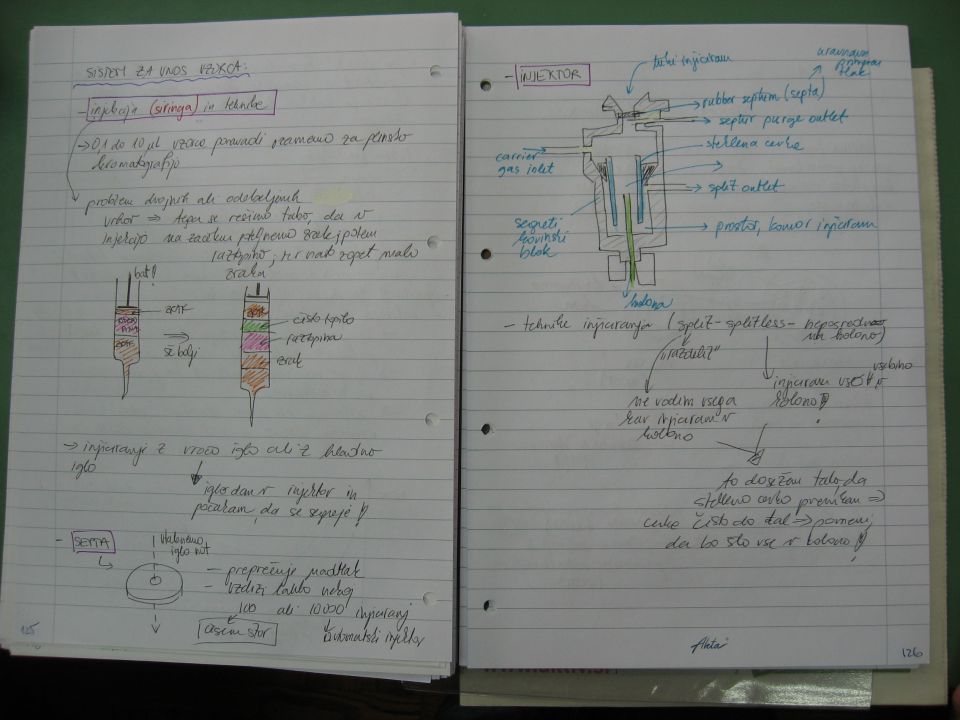 SISTEM ZA VNOS VZORCA:
- injekcija (siringa) in tehnike
→ 0,1 do 10 µl vzorca ponavadi vzamemo za plinsko
kromatografijo
problem dvojnih ali odebeljenih
vrhov ⇒ tega se rešimo tako, da v
injekcijo na začetku potegnemo zrak, potem
raztopino, ter nato zopet malo
zraka
bat!
ZRAK
ZRAK
še bolj
ZRAK
čisto topilo
raztopina
zrak
→ injiciranje z vročo iglo ali z hladno
iglo
iglo dam v injektor in
počakam, da se segreje!
- SEPTA
vtaknemo
iglo not
- preprečuje nadtlak
- vzdrži lahko nekaj
100 ali 10000 injiciranj
avtomatski injektor
125
- INJEKTOR
tuki injiciram
tlak
rubber septum (septa)
septum purge outlet
steklena cevka
carrier
gas inlet
split outlet
segreti
kovinski
blok
prostor, kamor injiciram
kolona
- tehnike injiciranja (split - splitless - neposredno
na kolono)
"razdeliš"
ne vodim vsega
kar injiciram v
kolono
injiciram vse v
kolono!
to dosežem tako, da
stekleno cevko premikam ⇒
cevka čisto do tal ⇒ pomeni,
da bo šlo vse v kolono!
126